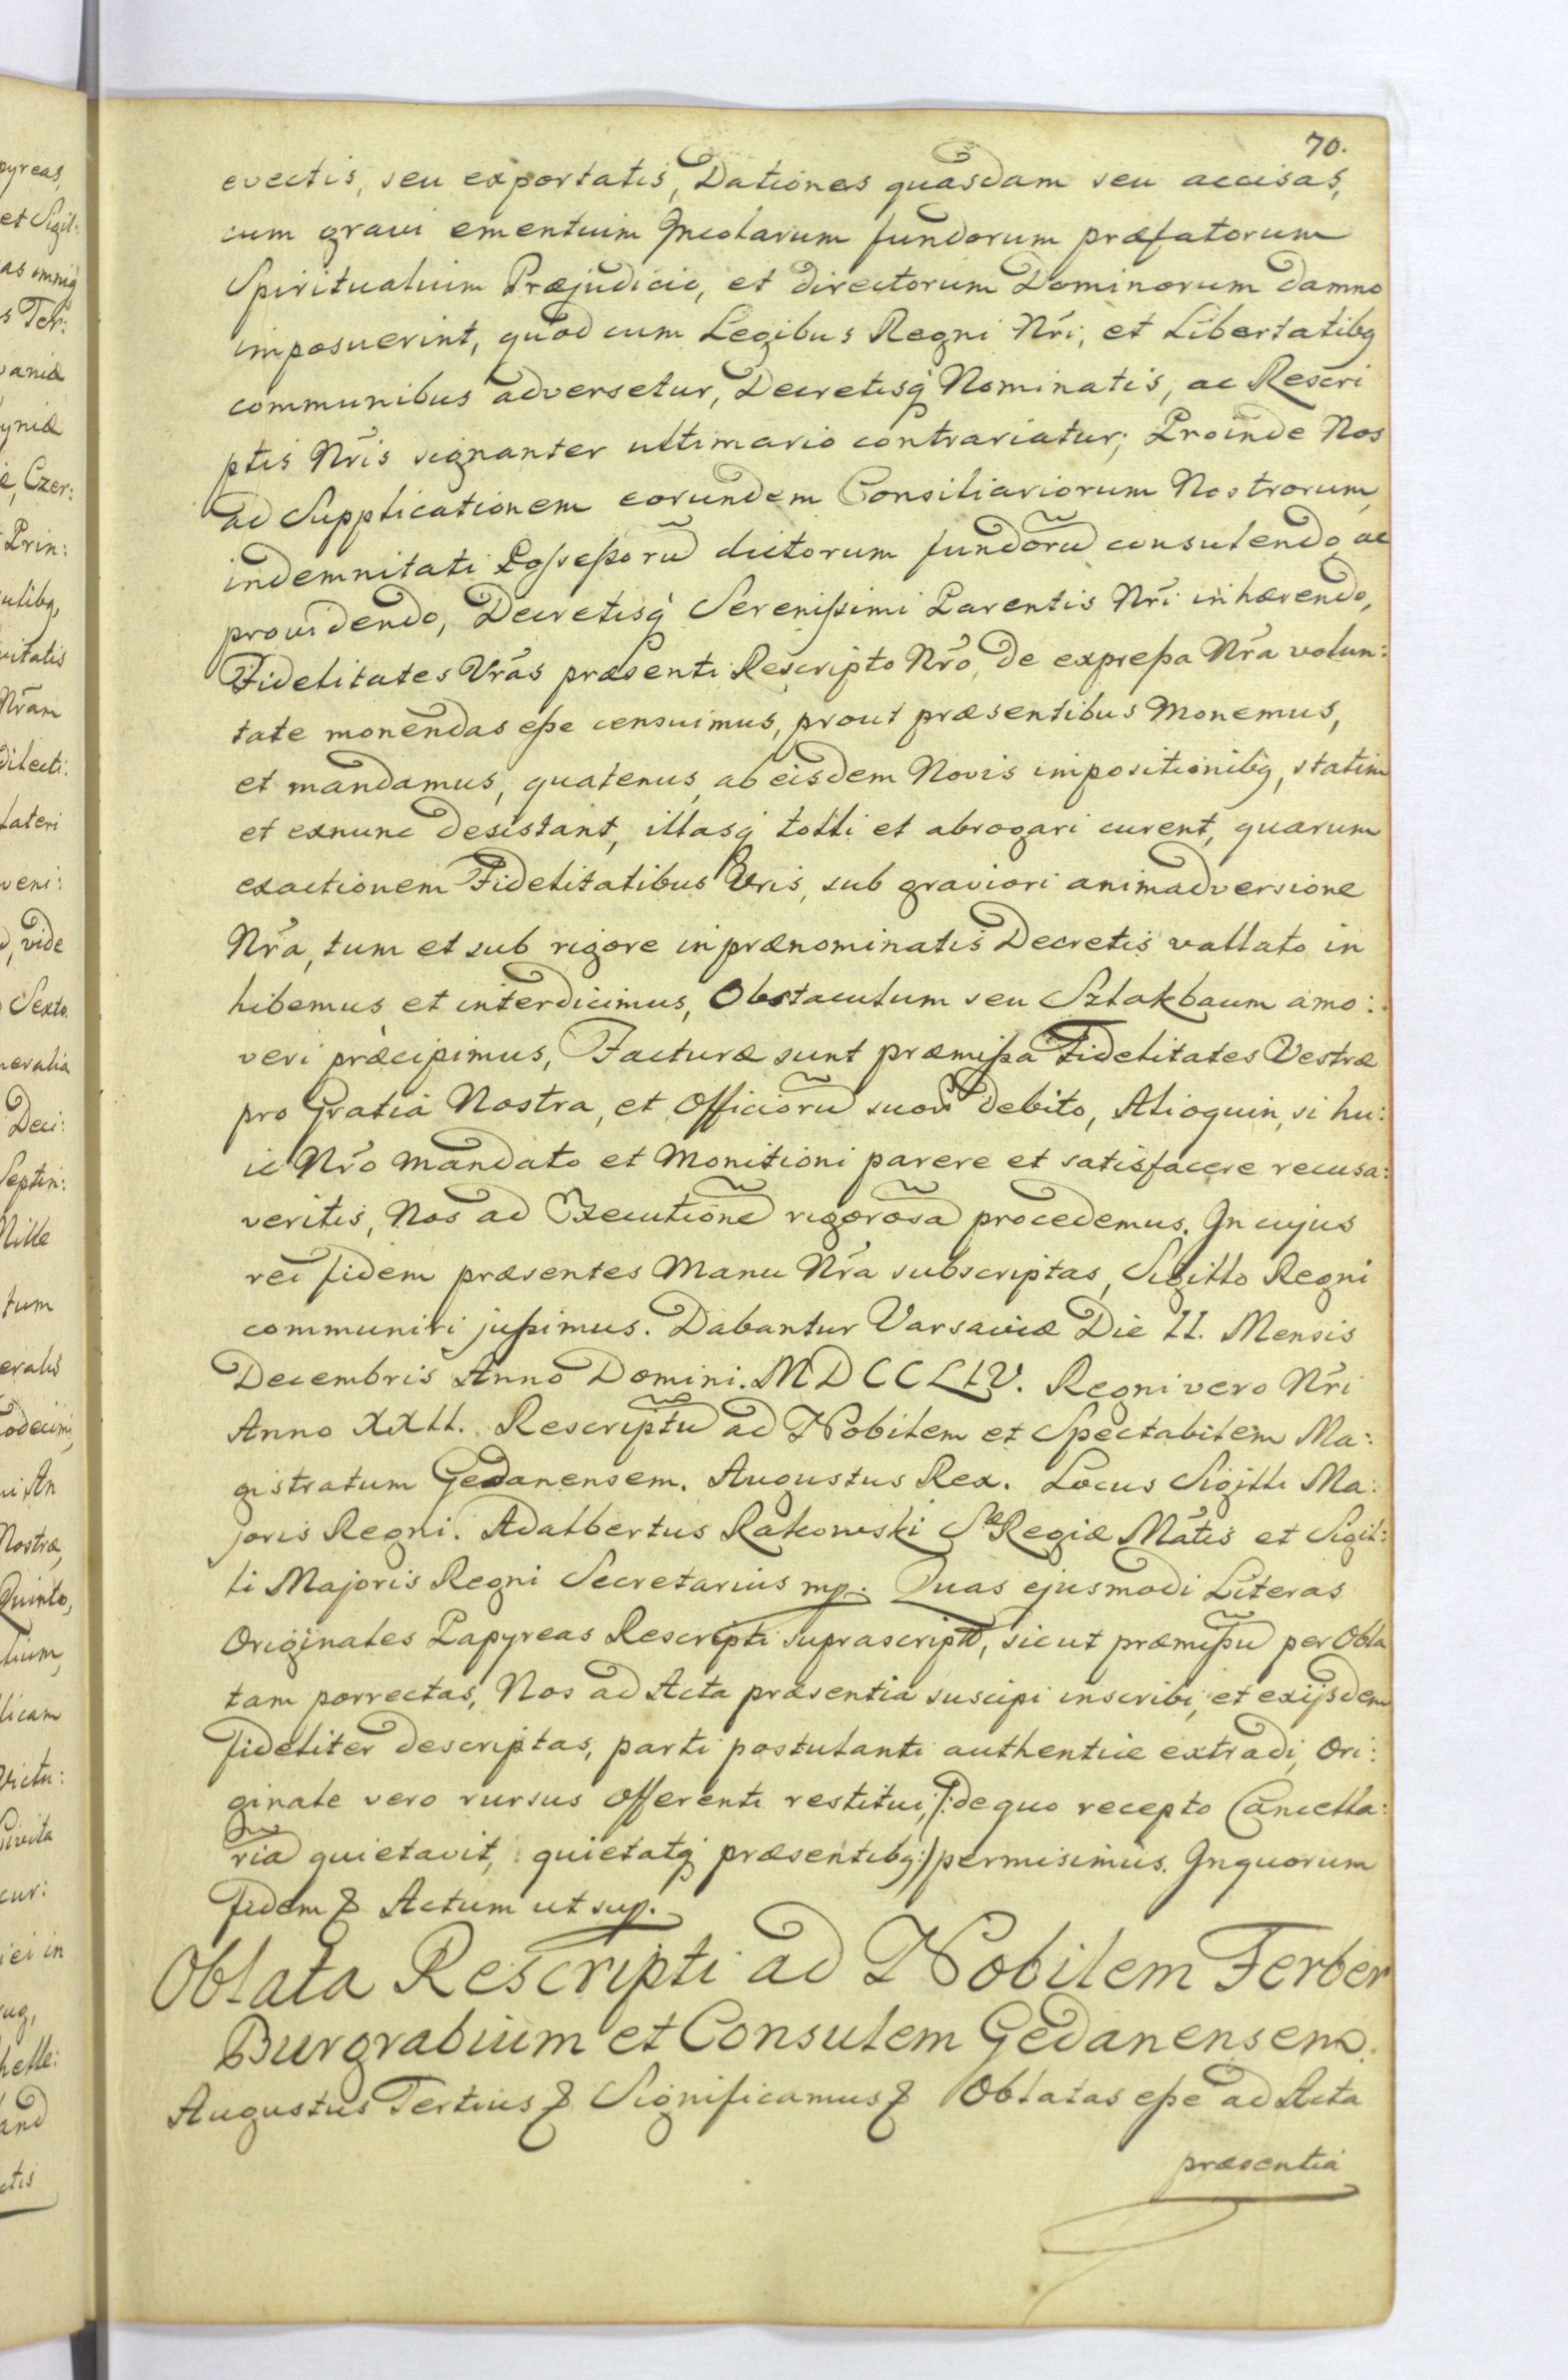 70.
evectis, seu exportatis, Dationes quasdam seu accisas,
cum gravi ementium Incolarum fundorum præfatorum
Spiritualium Præjudicio, et directorum Dominorum damno
imposuerint, quod cum Legibus Regni Nr̃i, et Libertatibq
communibus adversetur, Decretisq̀ Nominatis, ac Rescri
ptis Nr̃is signanter ultimario contrariatur; Proinde Nos
ad Supplicationem eorundem Consiliariorum Nostrorum,
indemnitati Possessorũ dictorum fundorũ consulendo ac
providendo, Decretisq̀ Serenissimi Parentis Nr̃i inhærendo,
Fidelitates Vr̃as præsenti Rescripto Nr̃o, de expressa Nr̃a volun:
tate monendas esse censuimus, prout præsentibus Monemus,
et mandamus, quatenus, ab eisdem Novis impositionibq, statim
et exnunc desistant, illasq̀ tolli et abrogari curent, quarum
exactionem Fidelitatibus Vris, sub graviori animadversione
Nr̃a, tum et sub rigore in prænominatis Decretis vallato in
hibemus et interdicimus, Obstaculum seu Szlakbaum amo:
veri præcipimus, Facturæ sunt præmissa Fidelitates Vestræ
pro Gratia Nostra, et Officiorũ suorũ debito, Alioquin, si hu:
ic Nr̃o Mandato et Monitioni parere et satisfacere recusa:
veritis, Nos ad Executionẽ rigorosã procedemus. In cujus
rei fidem præsentes Manu Nr̃a subscriptas, Sigillo Regni
communiri jussimus. Dabantur Varsaviæ Die II. Mensis
Decembris Anno Domini. MDCCLIV. Regni vero Nr̃i
Anno XXII. Rescriptũ ad Nobilem et Spectabilem Ma:
gistratum Gedanensem. Augustus Rex. Locus Sigilli Ma:
joris Regni. Adalbertus Rakowski Sæ Regiæ Mãtis et Sigil:
li Majoris Regni Secretarius mp. Quas ejusmodi Literas
Originales Papyreas Rescripti suprascripti, sicut præmissũ per Obla
tam porrectas, Nos ad Acta præsentia suscipi inscribi, et exijsdem
fideliter descriptas, parti postulanti authentice extradi, Ori:
ginale vero rursus Offerenti restitui, /:de quo recepto Cancella:
riã quietavit, quietatq̀ præsentibq:/ permisimus. In quorum
fidem & Actum ut sup.
Oblata Rescripti ad Nobilem Ferber
Burgrabium et Consulem Gedanensem.
Augustus Tertius & Significamus & Oblatas esse ad Acta
præsentia